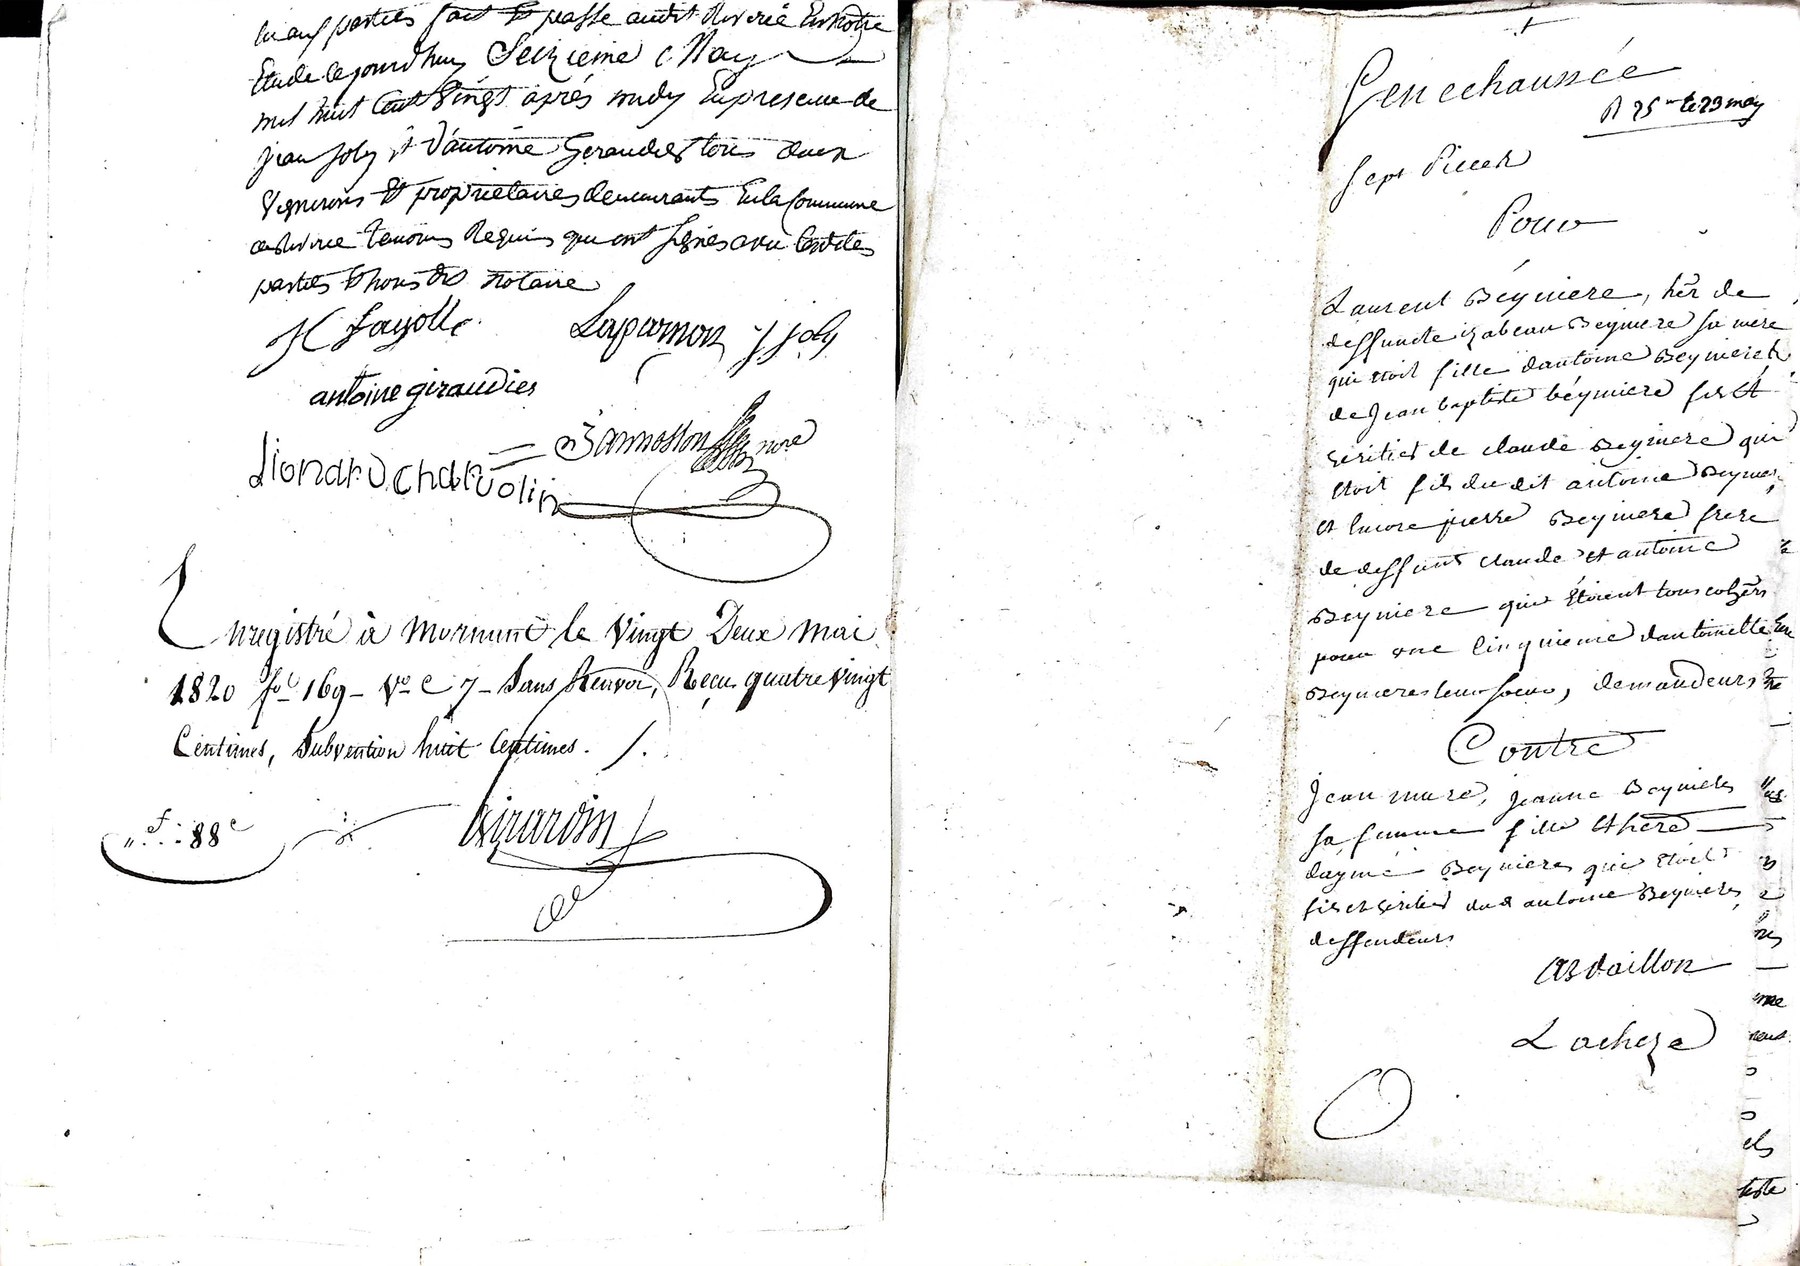 parties fait et passé audit Riverie En notre
Etude Cejourd'huy Seizieme May
mil huit Cent Vingt après midy En presence de
jean joly et d'antoine Geraudies tous deux
Vignerons et proprietaires demeurants En la Commune
de Riverie temoins Requis qui ont signés avec lesdites
parties Et nous dt notaire
Fayolle Laparnon J joly
antoine giraudies
Jannosson nore
Lionard charvolin
Enregistré à Mornant le Vingt Deux mai
1820 fo 169 - Vo C 7 - Sans Renvoi, Reçu quatre vingt
Centimes, Subvention huit Centimes.
f 88 c
Girardin
Senechaussée
R 25 le 23 may
Sept Pieces
Pour
Laurent Beyniere, her de
deffuncte izabeau Beyniere sa mere
qui etoit fille dantoine Beyniere et
de Jean baptiste béyniere fils et
heritier de claude Beyniere qui
etoit fils du dit antoine Beyniere
et encore pierre Beyniere frere
de deffunt claude et antoine
Beyniere qui étoient tous cohers
pour une cinquieme dantoinette
Beynieres leur soeur, demandeurs
Contre
Jean mure, jeanne Beynieres
sa femme fille et here
daymé Beynieres qui etoit
fils et heritier dud antoine Beynieres
deffendeurs
Ardaillon
Lacheze